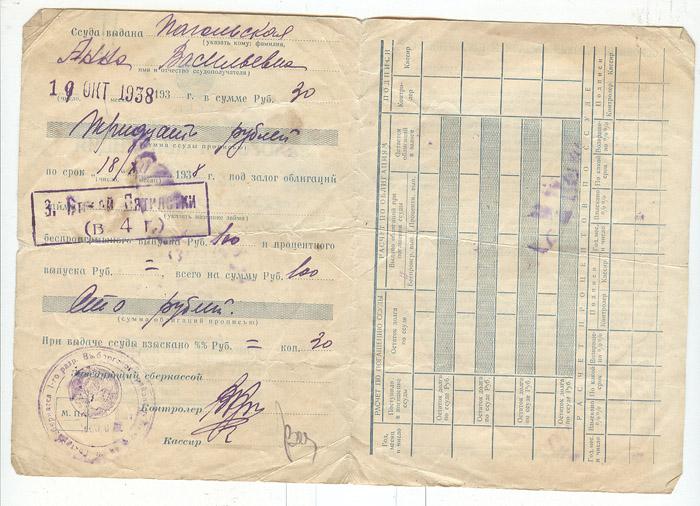 Ссуда выдана
(указать кому: фамилия,
Анна Васильевна
имя и отчество ссудополучателя)
19 ОКТ 1938 193 г. в сумме Руб. 30
(число,
Тридцать рублей
(сумма ссуды прописью)
по срок 18/ 1938 г. под залог облигаций
(число, месяц)
Займа
з. Пятилетки
(указать название займа)
(в 4 г.)
беспроигрышного выпуска Руб. 100 и процентного
выпуска Руб. =, всего на сумму Руб. 100
Сто рублей.
(сумма облигаций прописью)
При выдаче ссуды взыскано %% Руб. = коп. 20
Заведующий сберкассой
1-го разр. Выборг
М. П.
Контролер
Кассир
РАСЧЕТ ПО ПОГАШЕНИЮ ССУДЫ
РАСЧЕТ ПО ОБЛИГАЦИЯМ
ПОДПИСИ
Год, месяц и число
Поступило в погашение ссуды
Остаток долга по ссуде
Выдано облигаций при погашении ссуды
Беспроигр. вып.
Процентн. вып.
Остаток облигаций в залоге
Контролер
Кассир
Остаток долга по ссуде Руб.
Остаток долга по ссуде Руб.
Остаток долга по ссуде Руб.
Остаток долга по ссуде Руб.
РАСЧЕТ ПРОЦЕНТОВ ПО ССУДЕ
Год, мес. и число
Взыскано
По какой срок
Подписи
Контролер
Кассир
Год, мес. и число
Взыскано
По какой срок
Подписи
Контролер
Кассир